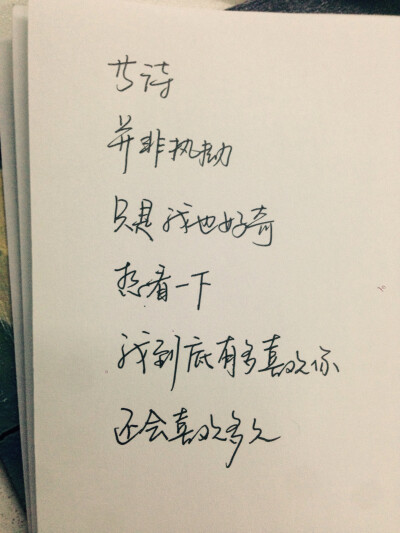 艺诗
并非执拗
只是我也好奇
想看一下
我到底有多喜欢你
还会喜欢多久